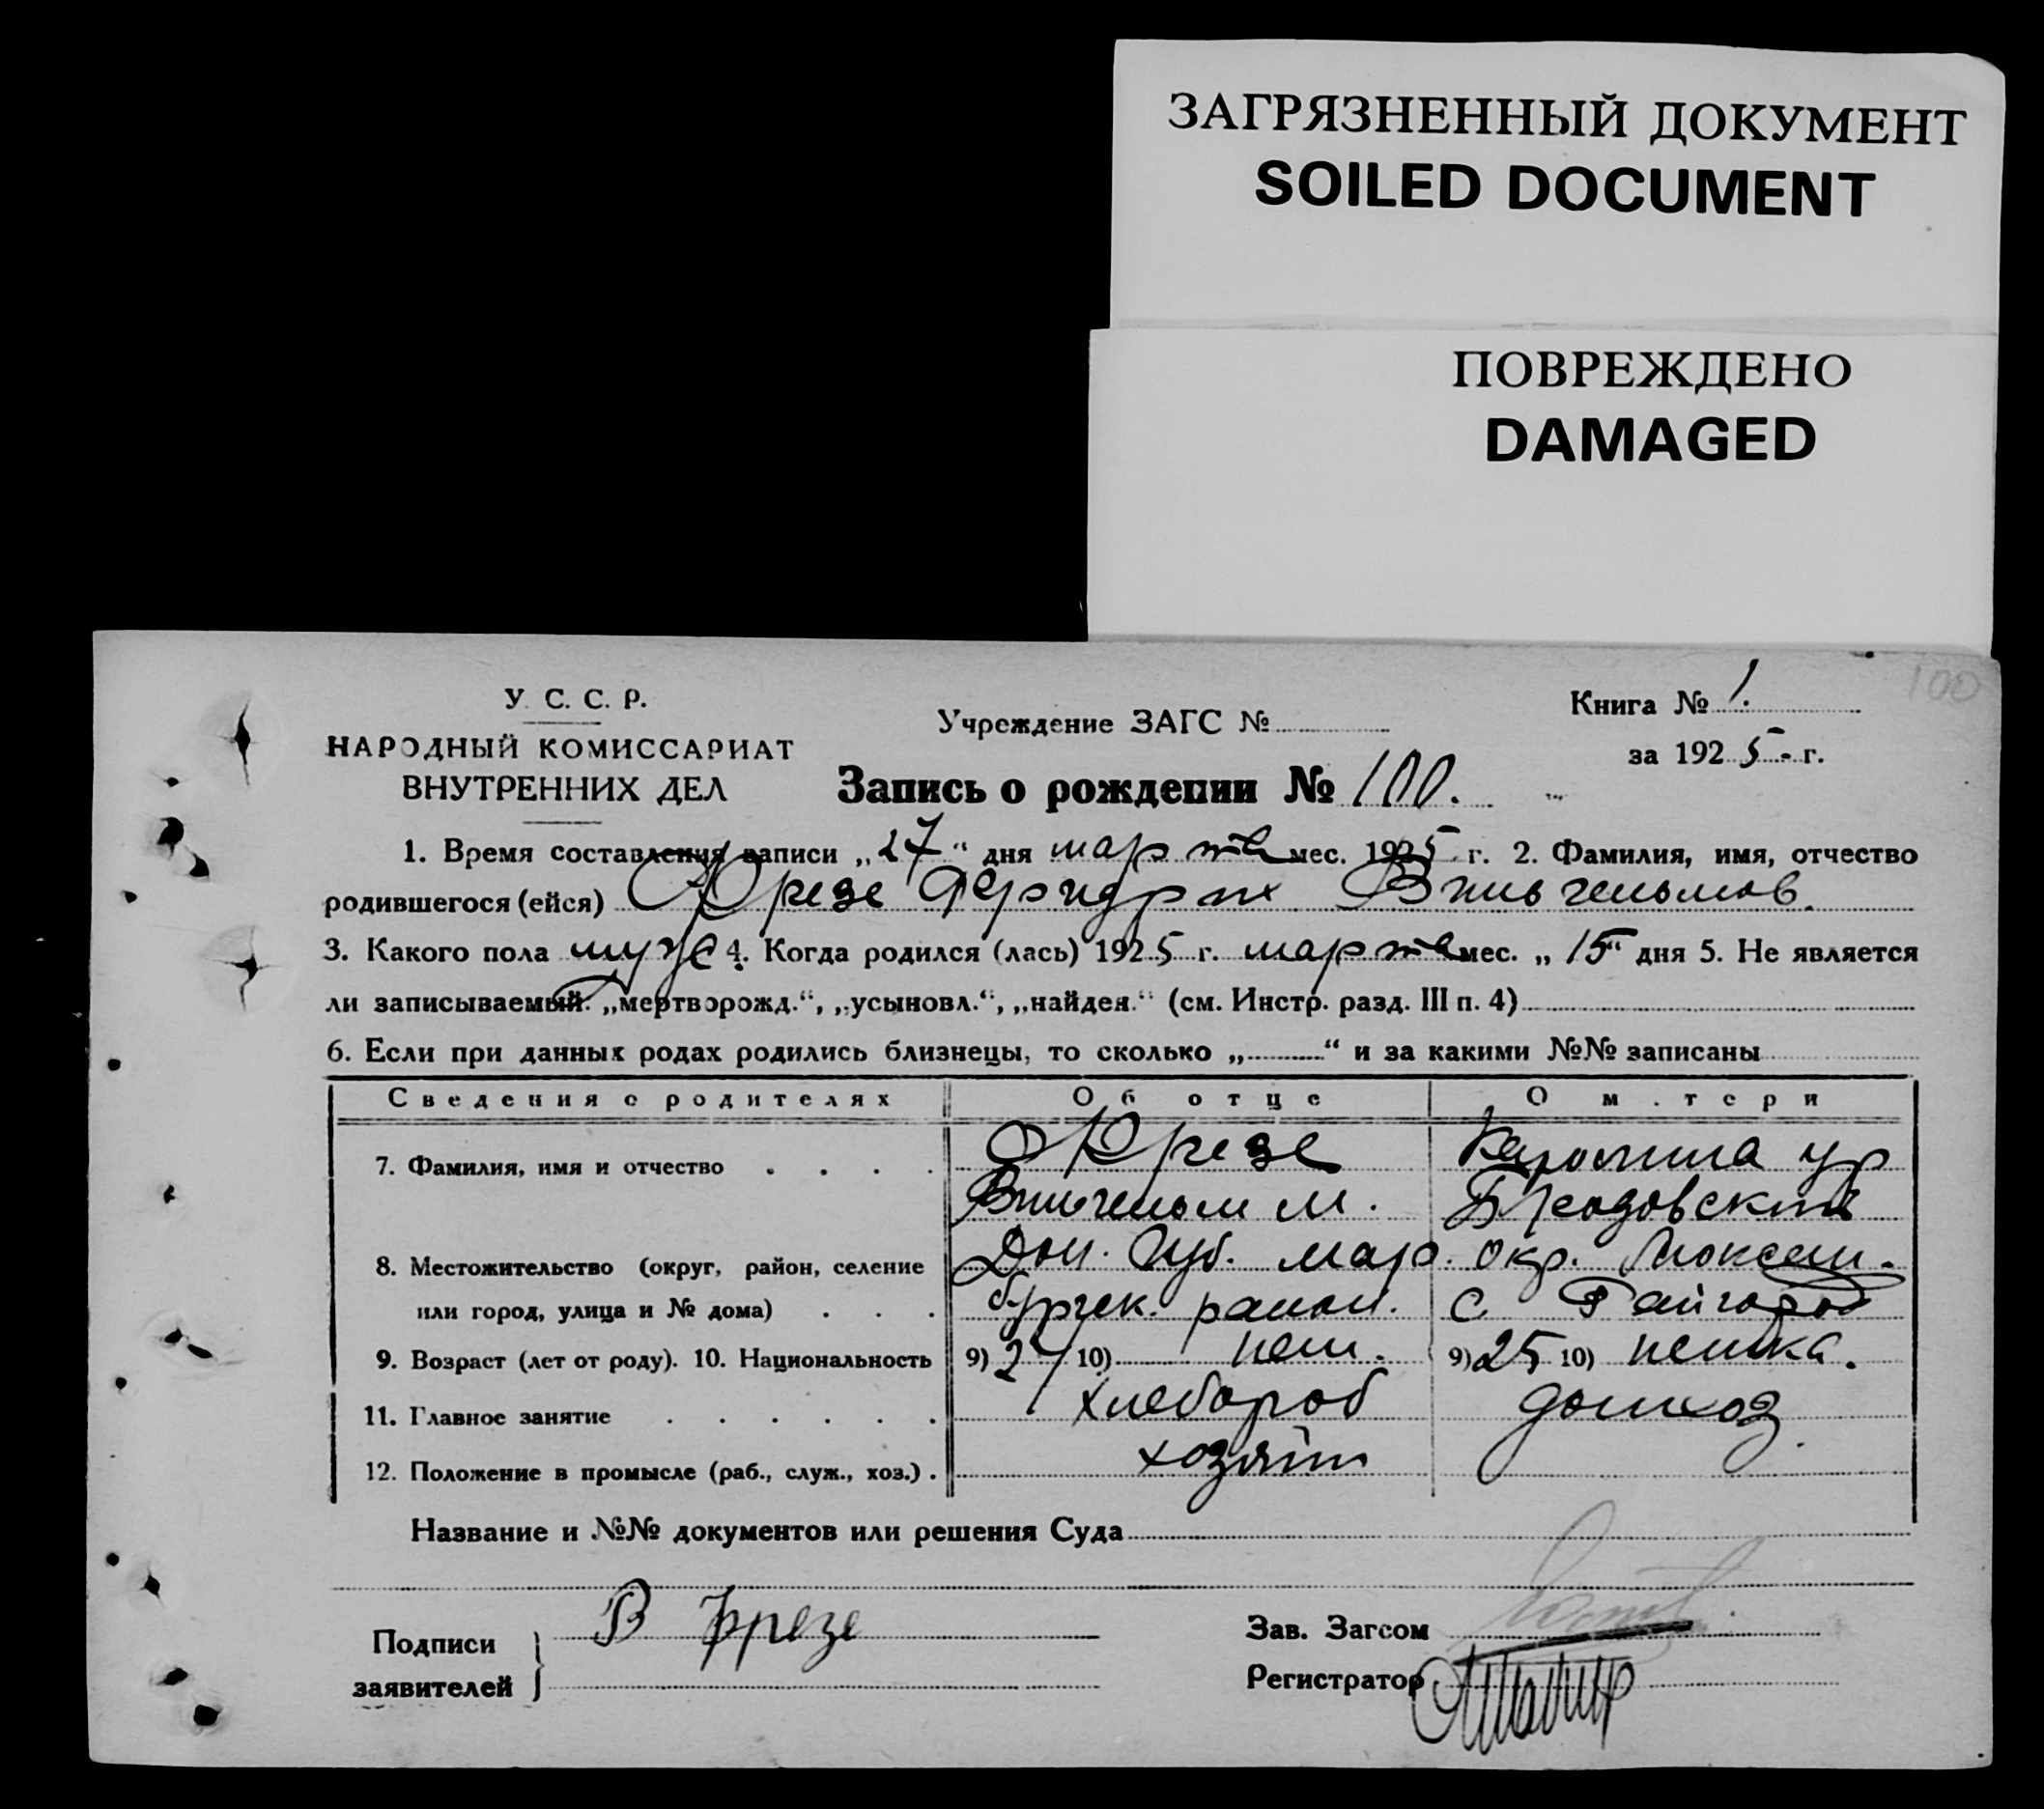 ЗАГРЯЗНЕННЫЙ ДОКУМЕНТ
SOILED DOCUMENT
ПОВРЕЖДЕНО
DAMAGED
100
У. С. С. Р.
НАРОДНЫЙ КОМИССАРИАТ
ВНУТРЕННИХ ДЕЛ
Учреждение ЗАГС №
Книга № 1.
за 1925 г.
Запись о рождении № 100.
1. Время составления записи „27“ дня марта мес. 1925 г. 2. Фамилия, имя, отчество
родившегося (ейся) Фрезе Фридрих Вильгельмов.
3. Какого пола муж 4. Когда родился (лась) 1925 г. марта мес. „15“ дня 5. Не является
ли записываемый: „мертворожд.“, „усыновл.“, „найден.“ (см. Инстр. разд. III п. 4)
6. Если при данных родах родились близнецы, то сколько „ “ и за какими №№ записаны
Сведения о родителях Об отце О м.тери
7. Фамилия, имя и отчество Фрезе Каролина ур
Вильгельм М.
8. Местожительство (округ, район, селение Дон. Губ. мар. окр. Люксем-
или город, улица и № дома) бургск. район. с Райгород
9. Возраст (лет от роду). 10. Национальность 9) 27 10) нем. 9) 25 10) немка.
11. Главное занятие хлебороб домхоз
12. Положение в промысле (раб., служ., хоз.) хозяин
Название и №№ документов или решения Суда
Подписи
заявителей
В Фрезе
Зав. Загсом
Регистратор